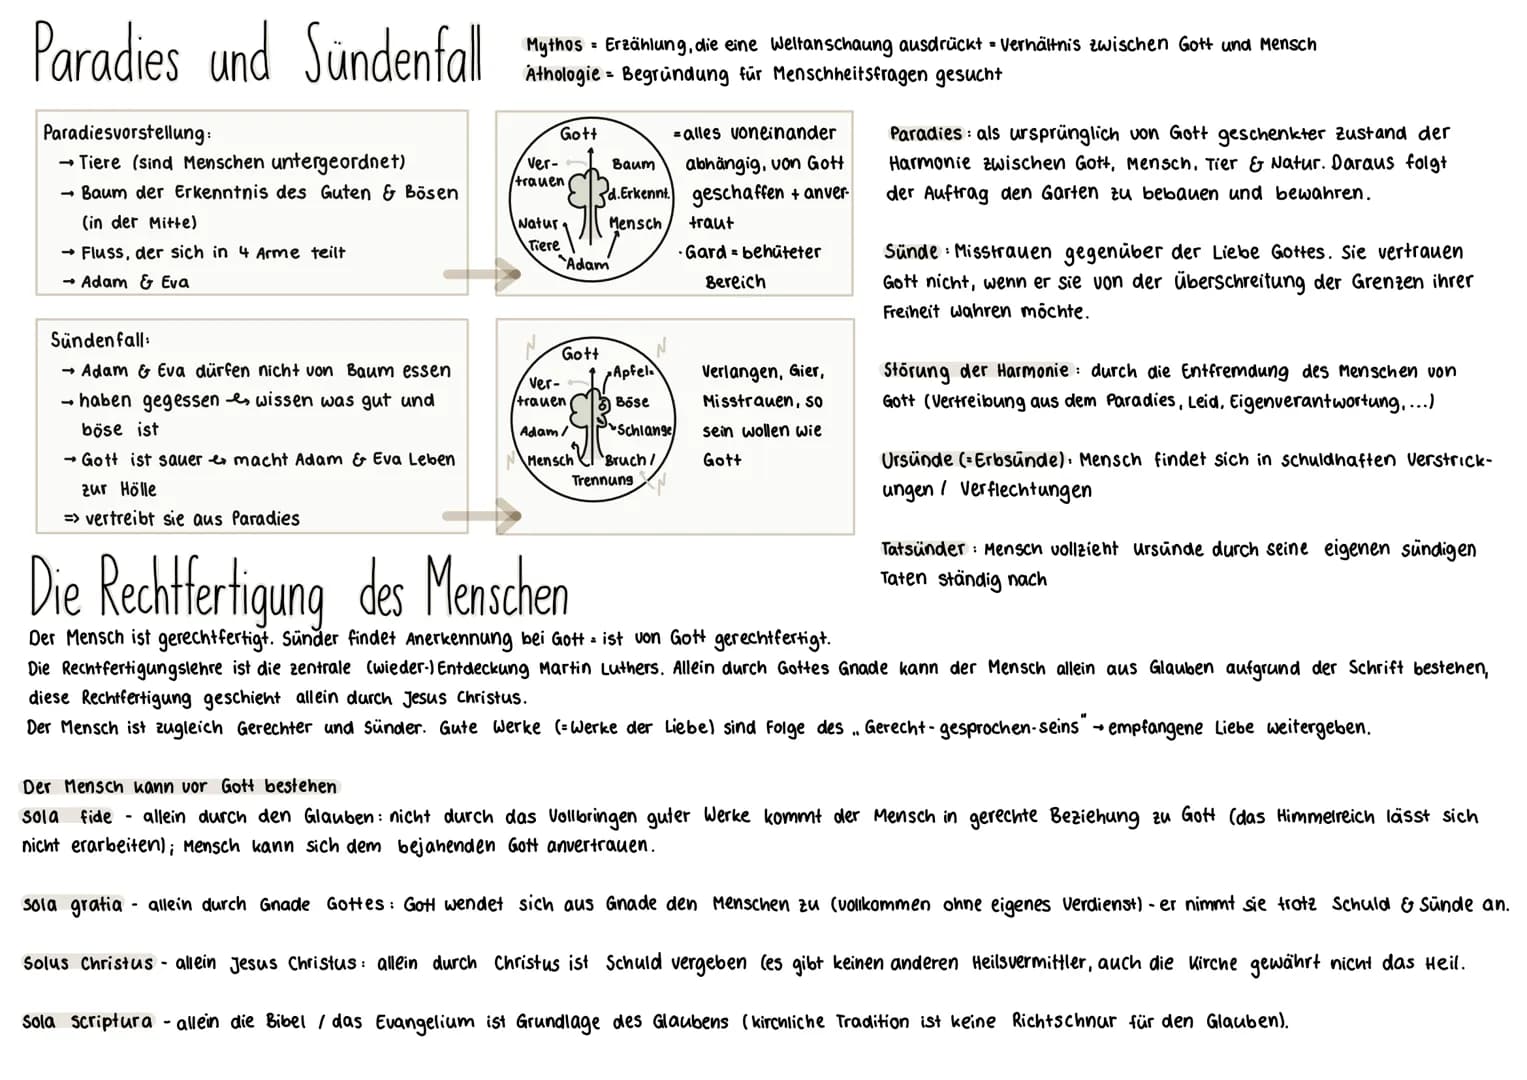 Paradies und Sündenfall
Mythos = Erzählung, die eine Weltanschaung ausdrückt = Verhältnis zwischen Gott und Mensch
Äthologie = Begründung für Menschheitsfragen gesucht
Paradiesvorstellung:
→ Tiere (sind Menschen untergeordnet)
→ Baum der Erkenntnis des Guten & Bösen
(in der Mitte)
→ Fluss, der sich in 4 Arme teilt
→ Adam & Eva
Gott
Ver-
trauen
Baum
d.Erkennt.
Natur
Mensch
Tiere
Adam
= alles voneinander
abhängig, von Gott
geschaffen + anver-
traut
· Gard = behüteter
Bereich
Sündenfall:
→ Adam & Eva dürfen nicht von Baum essen
→ haben gegessen → wissen was gut und
böse ist
→ Gott ist sauer → macht Adam & Eva Leben
zur Hölle
=> vertreibt sie aus Paradies
Gott
Apfel
Ver-
trauen
Böse
Adam/
Schlange
Mensch
Bruch/
Trennung
Verlangen, Gier,
Misstrauen, so
sein wollen wie
Gott
Paradies: als ursprünglich von Gott geschenkter Zustand der
Harmonie zwischen Gott, Mensch, Tier & Natur. Daraus folgt
der Auftrag den Garten zu bebauen und bewahren.
Sünde: Misstrauen gegenüber der Liebe Gottes. Sie vertrauen
Gott nicht, wenn er sie von der Überschreitung der Grenzen ihrer
Freiheit wahren möchte.
Störung der Harmonie: durch die Entfremdung des Menschen von
Gott (Vertreibung aus dem Paradies, Leid, Eigenverantwortung,...)
Ursünde (=Erbsünde): Mensch findet sich in schuldhaften Verstrick-
ungen / Verflechtungen
Tatsünder: Mensch vollzieht Ursünde durch seine eigenen sündigen
Taten ständig nach
Die Rechtfertigung des Menschen
Der Mensch ist gerechtfertigt. Sünder findet Anerkennung bei Gott = ist von Gott gerechtfertigt.
Die Rechtfertigungslehre ist die zentrale (wieder-) Entdeckung Martin Luthers. Allein durch Gottes Gnade kann der Mensch allein aus Glauben aufgrund der Schrift bestehen,
diese Rechtfertigung geschieht allein durch Jesus Christus.
Der Mensch ist zugleich Gerechter und Sünder. Gute Werke (=Werke der Liebe) sind Folge des „Gerecht-gesprochen-seins" → empfangene Liebe weitergeben.
Der Mensch kann vor Gott bestehen
Sola fide - allein durch den Glauben: nicht durch das Vollbringen guter Werke kommt der Mensch in gerechte Beziehung zu Gott (das Himmelreich lässt sich
nicht erarbeiten); Mensch kann sich dem bejahenden Gott anvertrauen.
Sola gratia - allein durch Gnade Gottes: Gott wendet sich aus Gnade den Menschen zu (vollkommen ohne eigenes Verdienst) - er nimmt sie trotz Schuld & Sünde an.
Solus Christus - allein Jesus Christus: allein durch Christus ist Schuld vergeben (es gibt keinen anderen Heilsvermittler, auch die Kirche gewährt nicht das Heil.
Sola scriptura - allein die Bibel / das Evangelium ist Grundlage des Glaubens (kirchliche Tradition ist keine Richtschnur für den Glauben).